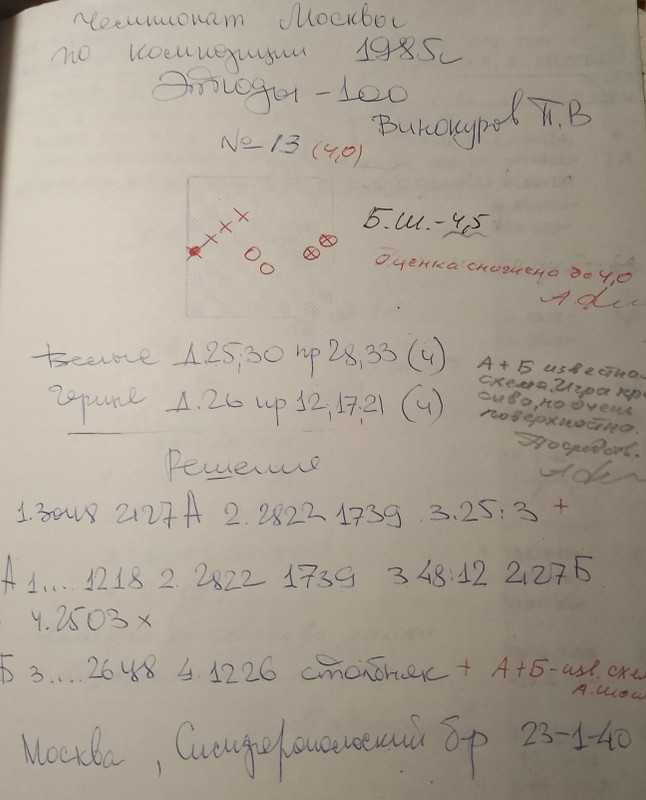 Чемпионат Москвы
по композиции 1985г
Этюды-100
Винокуров П.В
№ 13 (4,0)
Б.Ш.-4,5
оценка снижена до 4,0
Белые Д.25,30 пр 28,33 (4)
Черные Д.26 пр 12,17,21 (4)
А + Б известна
схема. Игра кра
сиво, но очень
поверхностно.
Посредств.
Решение
1.3048 2127А 2. 2822 1739 3.25:3 +
А 1.... 1218 2. 2822 1739 3 48:12 2127Б
4. 2503 х
Б 3....2648 4. 1226 столбняк + А+Б-изв. схе
А.
Москва, Симферопольский б-р 23-1-40